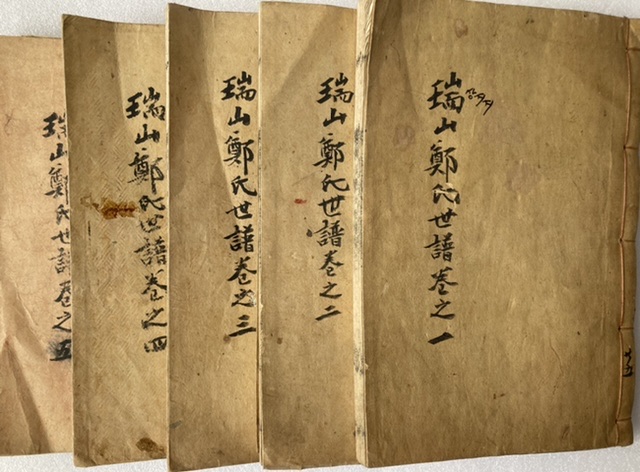 瑞山鄭氏世譜卷之一
瑞山鄭氏世譜卷之二
瑞山鄭氏世譜卷之三
瑞山鄭氏世譜卷之四
瑞山鄭氏世譜卷之五